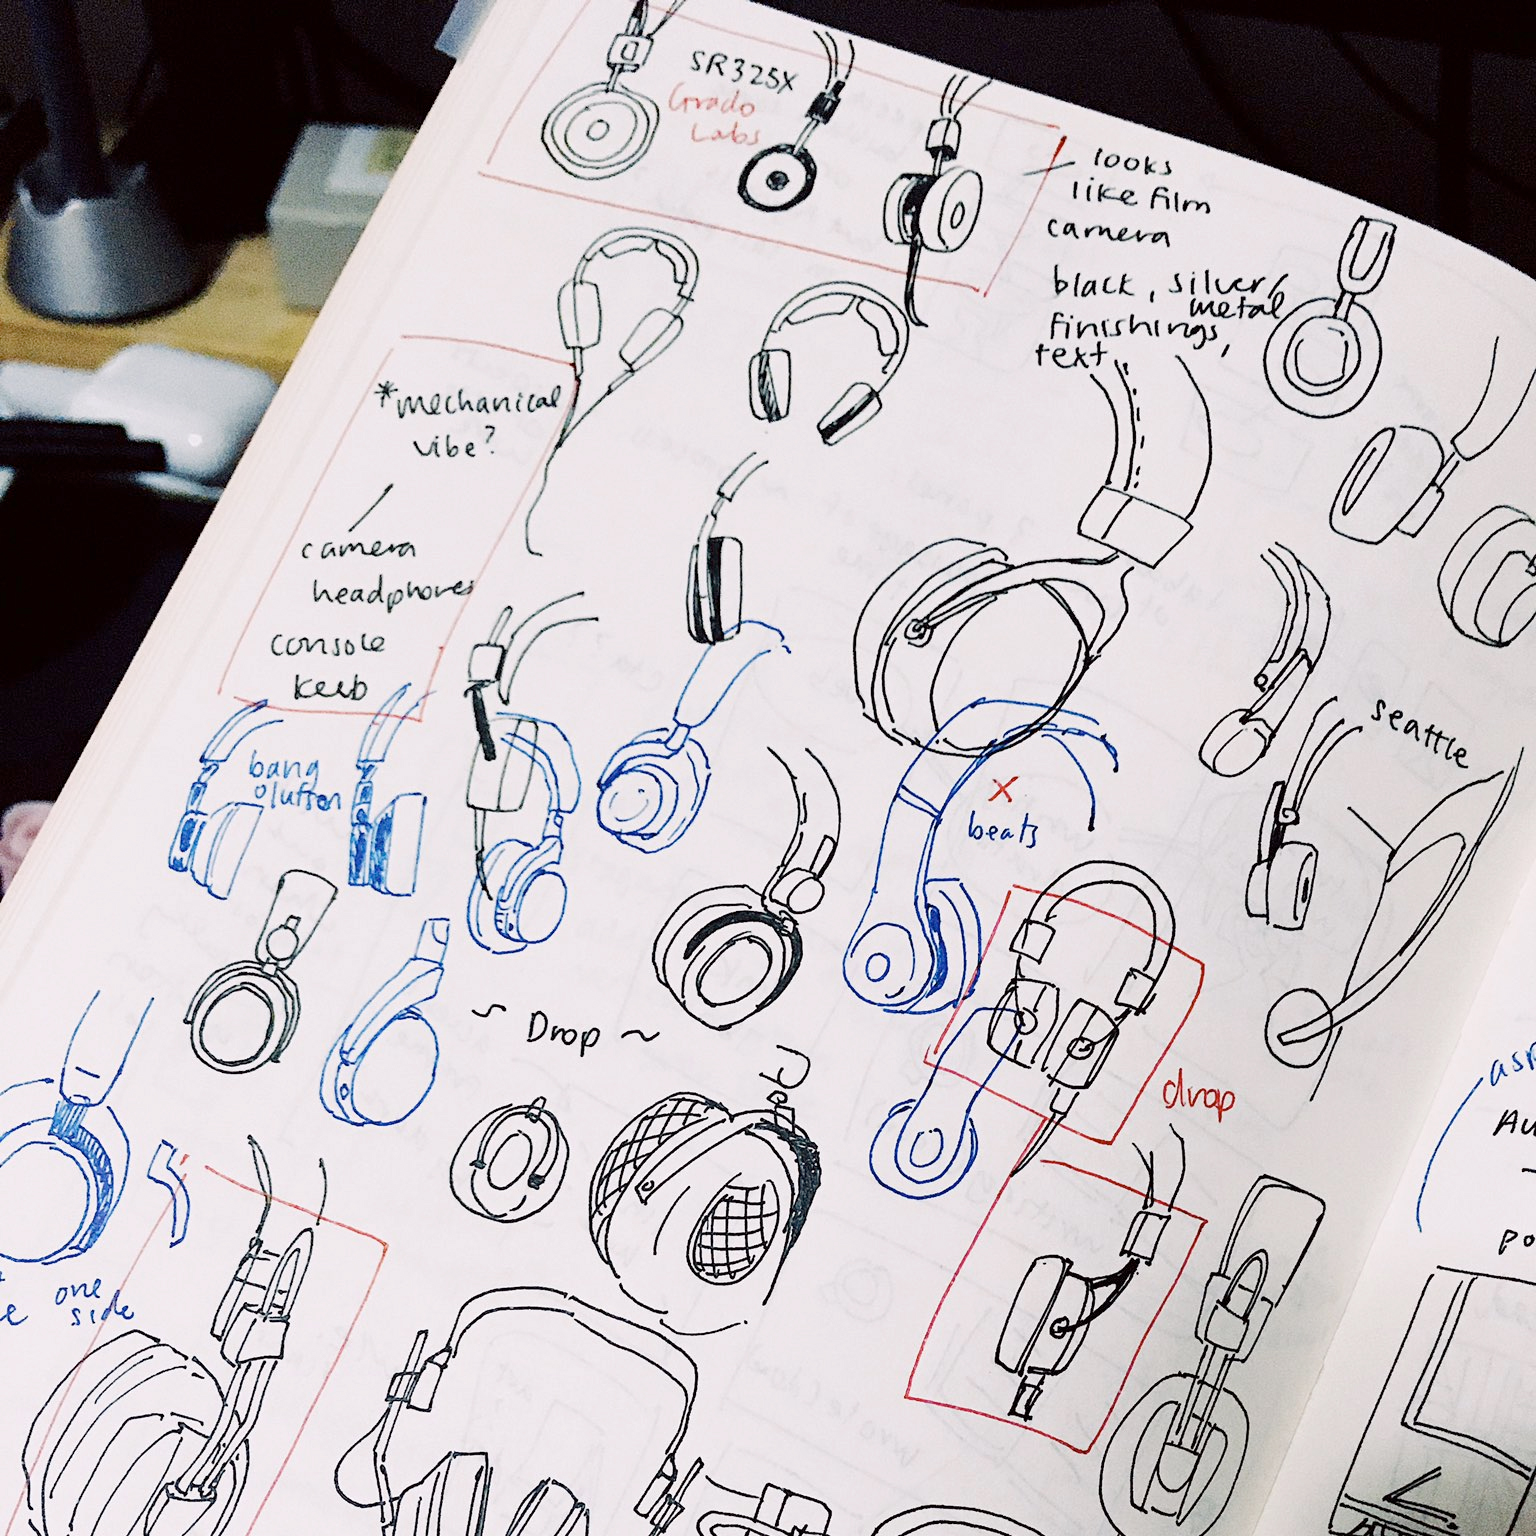 SR325X
Grado
Labs
looks
like film
camera
black, silver/
metal
finishings,
text
*mechanical
vibe?
camera
headphones
console
keeb
seattle
bang
olufson
x
beats
~ Drop ~
drop
one
side